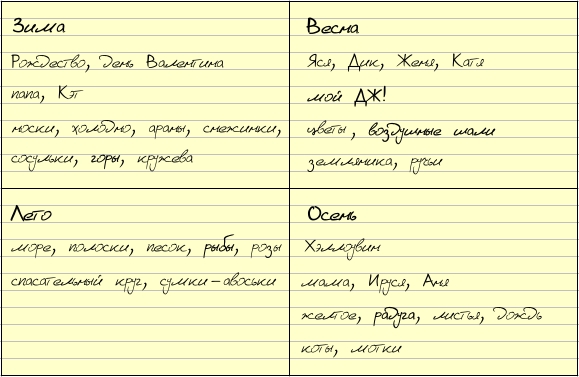 Зима
Рождество, День Валентина
папа, Кэт
носки, холодно, араны, снежинки,
сосульки, горы, кружева
Весна
Яся, Дик, Женя, Катя
мой ДЖ!
цветы, воздушные шали
земляника, ручьи
Лето
море, полоски, песок, рыбы, розы
спасательный круг, сумки-авоськи
Осень
Хэллоувин
мама, Ируся, Аня
желтое, радуга, листья, дождь
коты, мотки